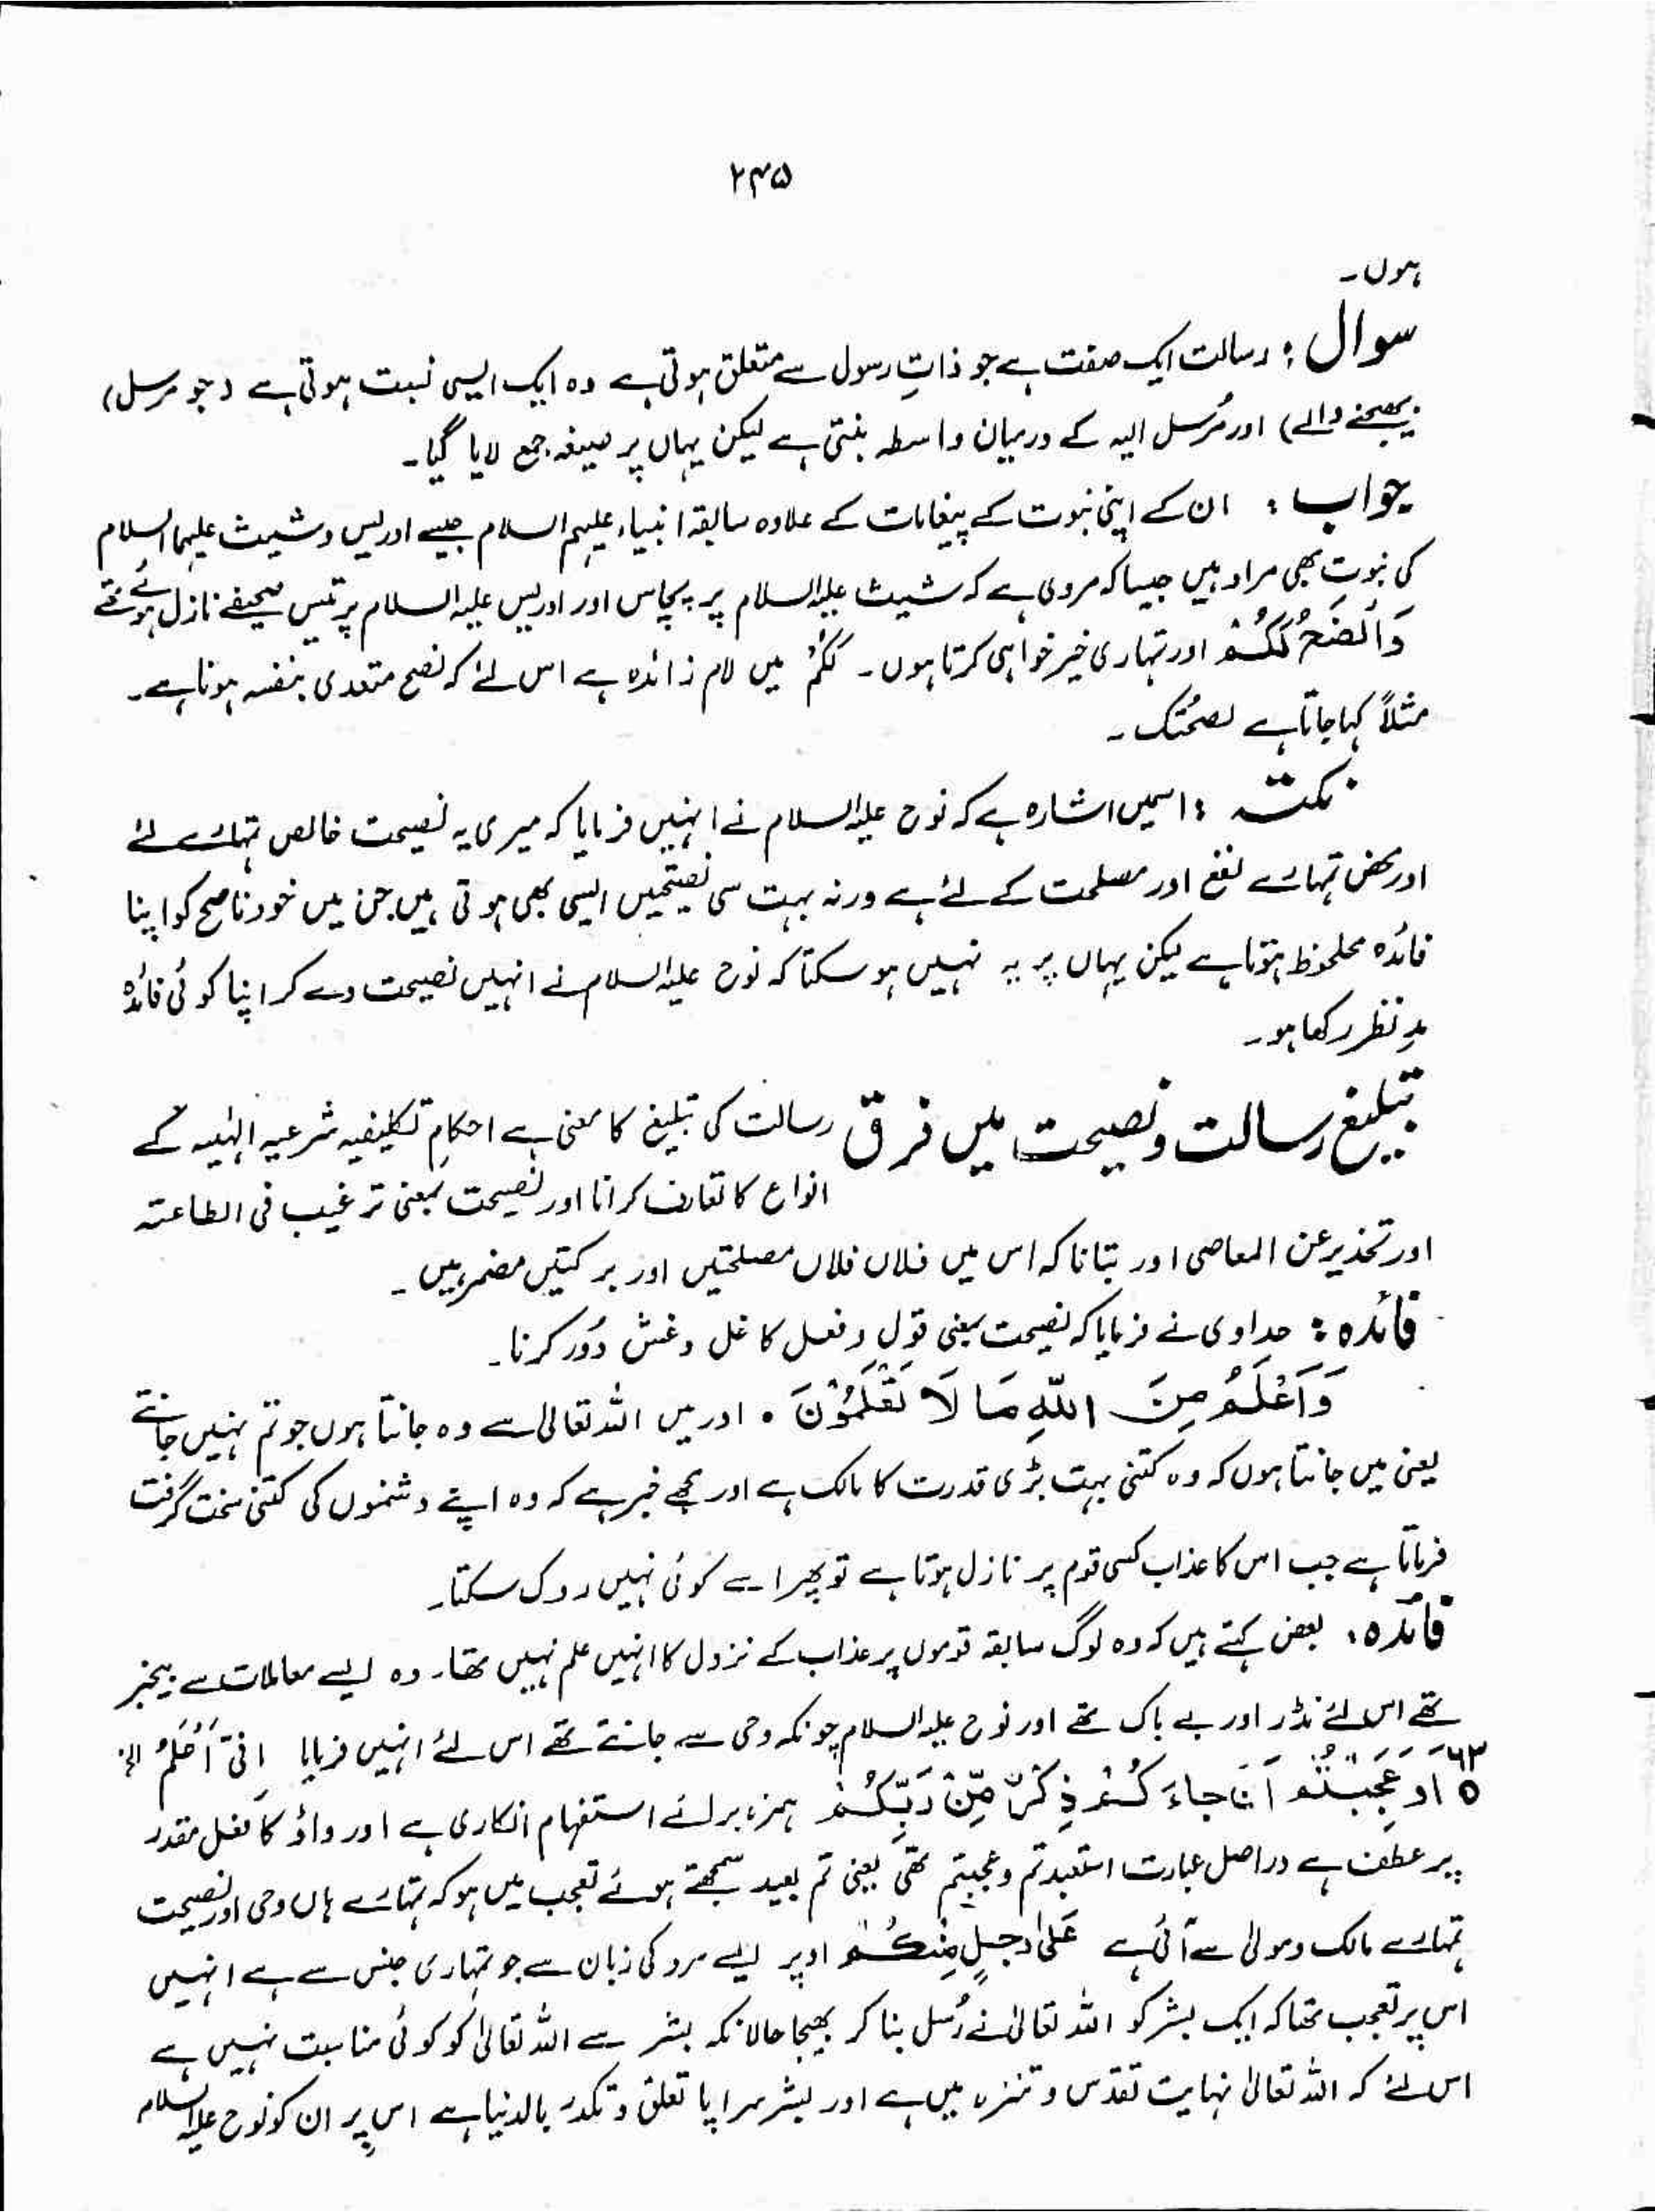 ۲۴۵
ہوں۔
سوال : رسالت ایک صفت ہے جو ذاتِ رسول سے متعلق ہوتی ہے وہ ایک ایسی نسبت ہوتی ہے (جو مرسل)
بھیجنے والے) اور مُرسل الیہ کے درمیان واسطہ بنتی ہے لیکن یہاں پر صیغہ جمع لایا گیا۔
جواب : ان کے اپنی نبوت کے پیغامات کے علاوہ سابقہ انبیاء علیہم السلام جیسے ادریس و شیث علیہما السلام
کی نبوت بھی مراد ہیں جیسا کہ مروی ہے کہ شیث علیہ السلام پر پچاس اور ادریس علیہ السلام پر تیس صحیفے نازل ہوئے تھے
وَاَنْصَحُ لَكُمْ اور تمہاری خیر خواہی کرتا ہوں۔ لَكُمْ میں لام زائدہ ہے اس لئے کہ نصح متعدی بنفسہ ہوتا ہے۔
مثلاً کہا جاتا ہے نصحُتک۔
نکتہ : اسمیں اشارہ ہے کہ نوح علیہ السلام نے انہیں فرمایا کہ میری یہ نصیحت خالص تمہارے لئے
اور محض تمہارے نفع اور مصلحت کے لئے ہے ورنہ بہت سی نصیحتیں ایسی بھی ہوتی ہیں جن میں خود ناصح کو اپنا
فائدہ ملحوظ ہوتا ہے لیکن یہاں پر یہ نہیں ہو سکتا کہ نوح علیہ السلام نے انہیں نصیحت دے کر اپنا کوئی فائدہ
مدِ نظر رکھا ہو۔
تبلیغ رسالت و نصیحت میں فرق رسالت کی تبلیغ کا معنی ہے احکامِ تکلیفیہ شرعیہ الہٰیہ کے
انواع کا تعارف کرانا اور نصیحت بمعنی ترغیب فی الطاعتہ
اور تحذیر عن المعاصی اور بتانا کہ اس میں فلاں فلاں مصلحتیں اور برکتیں مضمر ہیں۔
فائدہ : حدادی نے فرمایا کہ نصیحت بمعنی قول و فعل کا غل و غش دُور کرنا۔
وَاَعْلَمُ مِنَ اللّٰهِ مَا لَا تَعْلَمُوْنَ ۰ اور میں اللہ تعالیٰ سے وہ جانتا ہوں جو تم نہیں جانتے
یعنی میں جانتا ہوں کہ وہ کتنی بہت بڑی قدرت کا مالک ہے اور مجھے خبر ہے کہ وہ اپنے دشمنوں کی کتنی سخت گرفت
فرماتا ہے جب اس کا عذاب کسی قوم پر نازل ہوتا ہے تو پھر اسے کوئی نہیں روک سکتا۔
فائدہ : بعض کہتے ہیں کہ وہ لوگ سابقہ قوموں پر عذاب کے نزول کا انہیں علم نہیں تھا۔ وہ ایسے معاملات سے بیخبر
تھے اس لئے نڈر اور بے باک تھے اور نوح علیہ السلام چونکہ وحی سے جانتے تھے اس لئے انہیں فرمایا اِنِّیْ اَعْلَمُ الخ
۶۳ ٥ اَوَعَجِبْتُمْ اَنْ جَاءَكُمْ ذِكْرٌ مِّنْ رَّبِّكُمْ ہمزہ برائے استفہام انکاری ہے اور واؤ کا فعل مقدر
پر عطف ہے دراصل عبارت استبعدتم و عجبتم تھی یعنی تم بعید سمجھتے ہوئے تعجب میں ہو کہ تمہارے ہاں وحی اور نصیحت
تمہارے مالک و مولیٰ سے آئی ہے عَلٰی رَجُلٍ مِّنْكُمْ اوپر ایسے مرد کی زبان سے جو تمہاری جنس سے ہے انہیں
اس پر تعجب تھا کہ ایک بشر کو اللہ تعالیٰ نے رُسل بنا کر بھیجا حالانکہ بشر سے اللہ تعالیٰ کو کوئی مناسبت نہیں ہے
اس لئے کہ اللہ تعالیٰ نہایت تقدس و تنزہ میں ہے اور بشر سراپا تعلق و تکدر بالدنیا ہے اس پر ان کو نوح علیہ السلام